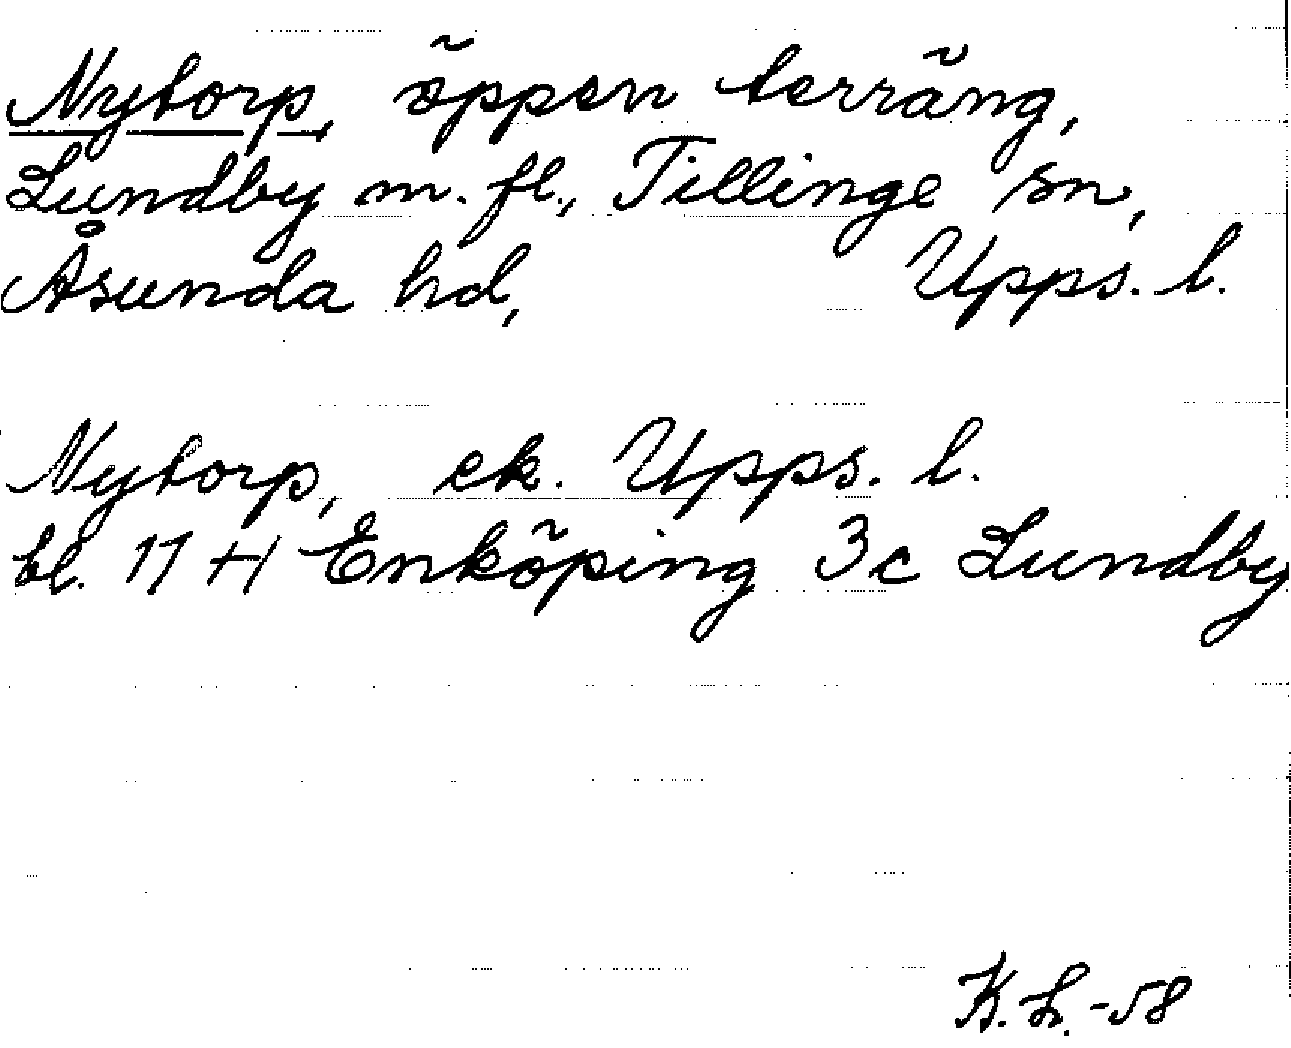 Nytorp, öppen terräng,
Lundby m. fl., Tillinge sn,
Åsunda hd, Upps. l.
Nytorp, ek. Upps. l.
bl. 11 H Enköping 3c Lundby
K.L. -58